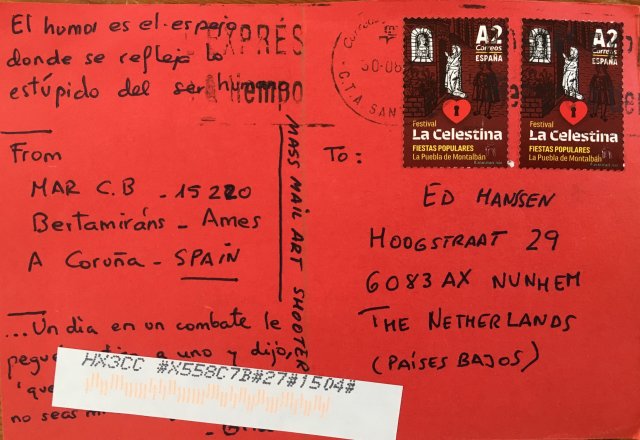 El humor es el espejo
donde se refleja lo
estúpido del ser humano
EXPRÉS
tiempo
C.T.A. SAN
A2
Correos
ESPAÑA
Festival
La Celestina
FIESTAS POPULARES
La Puebla de Montalbán
A2
Correos
ESPAÑA
Festival
La Celestina
FIESTAS POPULARES
La Puebla de Montalbán
From
MAR C.B - 15220
Bertamiráns - Ames
A Coruña - SPAIN
MASS MAIL ART SHOOTER
To:
ED HANSSEN
HOOGSTRAAT 29
6083 AX NUNHEM
THE NETHERLANDS
(PAÍSES BAJOS)
...Un dia en un combate le
a uno y dijo,
no seas
HX3CC #X558C7B#27#1504#